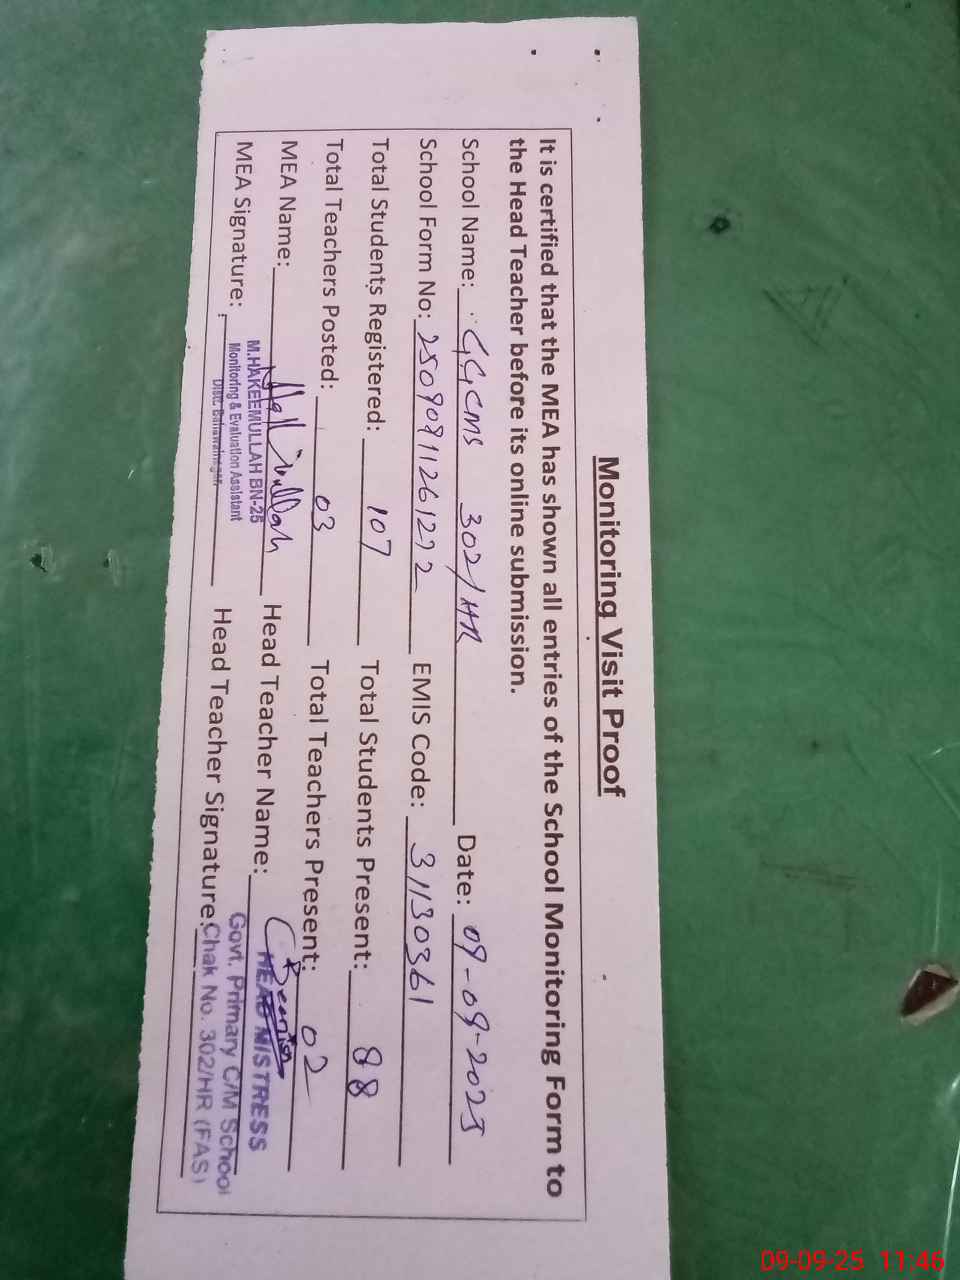 Monitoring Visit Proof
It is certified that the MEA has shown all entries of the School Monitoring Form to
the Head Teacher before its online submission.
School Name: GGCMS 302/HR Date: 09-09-2025
School Form No: 25090911261272 EMIS Code: 31130361
Total Students Registered: 107 Total Students Present: 88
Total Teachers Posted: 03 Total Teachers Present: 02
MEA Name: Head Teacher Name:
MEA Signature: Head Teacher Signature:
M.HAKEEMULLAH BN-25
Monitoring & Evaluation Assistant
Distt. Bahawalnagar
HEAD MISTRESS
Govt. Primary C/M School
Chak No. 302/HR (FAS)
09-09-25 11:46